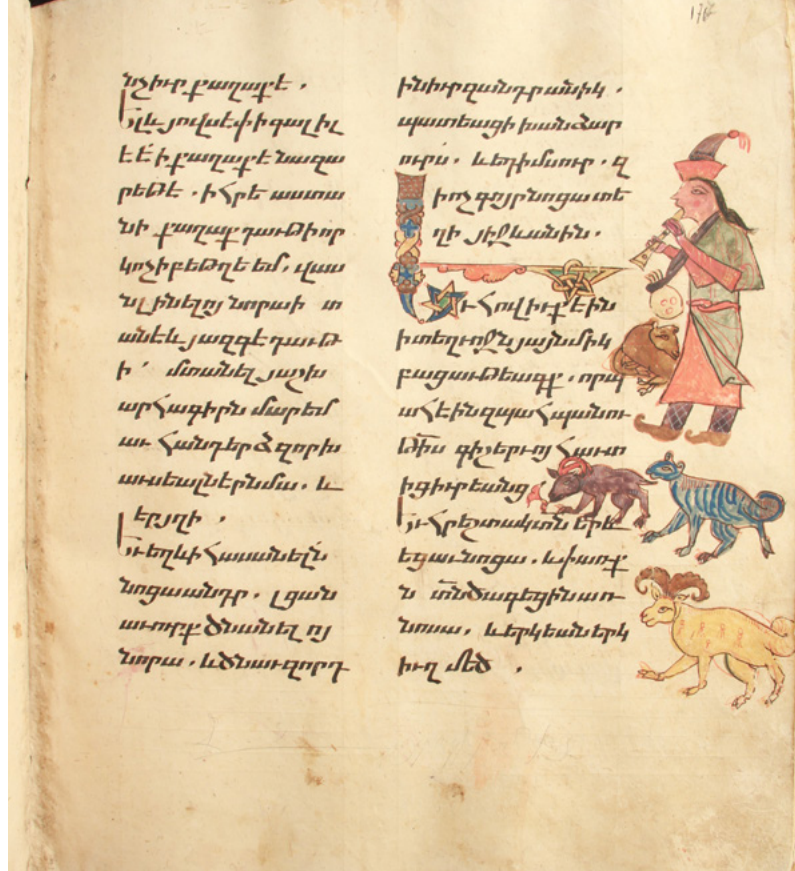 նչիւր քաղաքէ .
Ելև յովսէփ ի գալիլ
էէ ի քաղաքէ նազա
րեթէ . ի հրէաստա
նի քաղաք դաւթի որ
կոչի բեթղեէմ . վաս
ն լինելոյ նորա ի տ
անէ և յազգէ դաւթ
ի ՝ մտանել յաշխ
արհագիրն մարեմ
աւ հանդերձ զոր խ
աւսեալն էր նմա . և
էր յղի .
Եւ եղև ի հասանելն
նոցա անդր . լցան
աւուրք ծնանելոյ
նորա . և ծնաւ զորդ
ին իւր զանդրանիկ .
պատեաց ի խանձար
ուրս . և եդ ի մսուր . զ
ի ոչ գոյր նոցա տե
ղի յիջևանին .
Եւ հովիւք էին
ի տեղւոջն յայնմիկ
բացաւթեագք . որպ
ահէին զպահպանու
թի՟ս գիշերւոյ հաւտ
ից իւրեանց
Եւ հրեշտակ տն երև
եցաւ նոցա . և փառք
ն տ՟ն ծագեցին առ
նոսա . և երկեան երկ
իւղ մեծ .